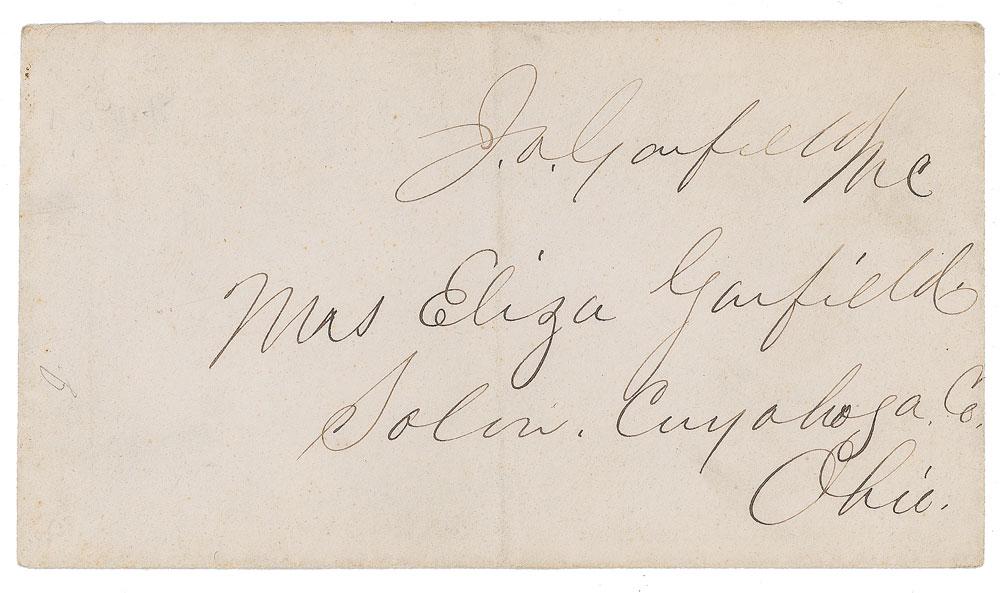 J. A. Garfield MC
Mrs Eliza Garfield
Solon. Cuyahoga. Co.
Ohio.